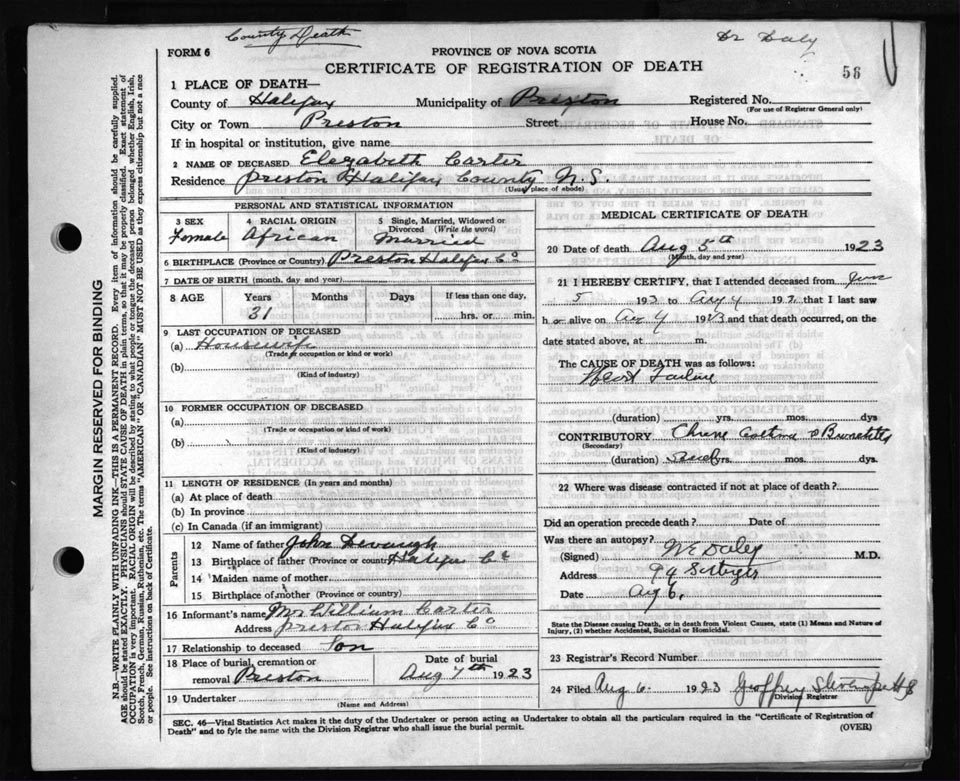 County Death
Dr Daly
FORM 6
PROVINCE OF NOVA SCOTIA
CERTIFICATE OF REGISTRATION OF DEATH
56
1 PLACE OF DEATH—
County of Halifax Municipality of Preston Registered No.
(For use of Registrar General only)
City or Town Preston Street House No.
If in hospital or institution, give name
2 NAME OF DECEASED Elezabeth Carter
Residence Preston Halifax County N.S.
(Usual place of abode)
PERSONAL AND STATISTICAL INFORMATION
3 SEX 4 RACIAL ORIGIN 5 Single, Married, Widowed or Divorced (Write the word)
Female African Married
6 BIRTHPLACE (Province or Country) Preston Halifax Co
7 DATE OF BIRTH (month, day and year)
8 AGE Years Months Days If less than one day,
31 hrs. or min.
9 LAST OCCUPATION OF DECEASED
(a) Housewife
(Trade or occupation or kind or work)
(b)
(Kind of industry)
10 FORMER OCCUPATION OF DECEASED
(a)
(Trade or occupation or kind of work)
(b)
(Kind of industry)
11 LENGTH OF RESIDENCE (In years and months)
(a) At place of death
(b) In province
(c) In Canada (if an immigrant)
Parents
12 Name of father John
13 Birthplace of father (Province or country) Halifax Co
14 Maiden name of mother
15 Birthplace of mother (Province or country)
16 Informant's name Mr William Carter
Address Preston Halifax Co
17 Relationship to deceased Son
18 Place of burial, cremation or removal Preston
Date of burial Aug 7th 1923
19 Undertaker
(Name and Address)
MEDICAL CERTIFICATE OF DEATH
20 Date of death Aug 5th 1923
(Month, day and year)
21 I HEREBY CERTIFY, that I attended deceased from
5 192 to Aug 4 192 that I last saw
h alive on Aug 4 1923 and that death occurred, on the
date stated above, at m.
The CAUSE OF DEATH was as follows:
Heart Failure
(duration) yrs. mos. dys
CONTRIBUTORY
(Secondary)
(duration) yrs. mos. dys.
22 Where was disease contracted if not at place of death?
Did an operation precede death? Date of
Was there an autopsy?
(Signed) W E Daley M.D.
Address
Date Aug 6,
State the Disease causing Death, or in death from Violent Causes, state (1) Means and Nature of Injury, (2) whether Accidental, Suicidal or Homicidal.
23 Registrar's Record Number
24 Filed Aug 6 1923 Geoffrey
Division Registrar
SEC. 46—Vital Statistics Act makes it the duty of the Undertaker or person acting as Undertaker to obtain all the particulars required in the "Certificate of Registration of
Death" and to fyle the same with the Division Registrar who shall issue the burial permit. (OVER)
MARGIN RESERVED FOR BINDING
N.B.—WRITE PLAINLY WITH UNFADING INK—THIS IS A PERMANENT RECORD. Every item of information should be carefully supplied.
AGE should be stated EXACTLY. PHYSICIANS should STATE CAUSE OF DEATH in plain terms, so that it may be properly classified. Exact statement of
OCCUPATION is very important. RACIAL ORIGIN will be described by stating to what people or tongue the deceased person belonged whether English, Irish,
Scotch, French, German, Russian, Ruthenian, etc. The terms "AMERICAN" OR "CANADIAN" MUST NOT BE USED as they express citizenship but not a race
or people. See instructions on back of Certificate.